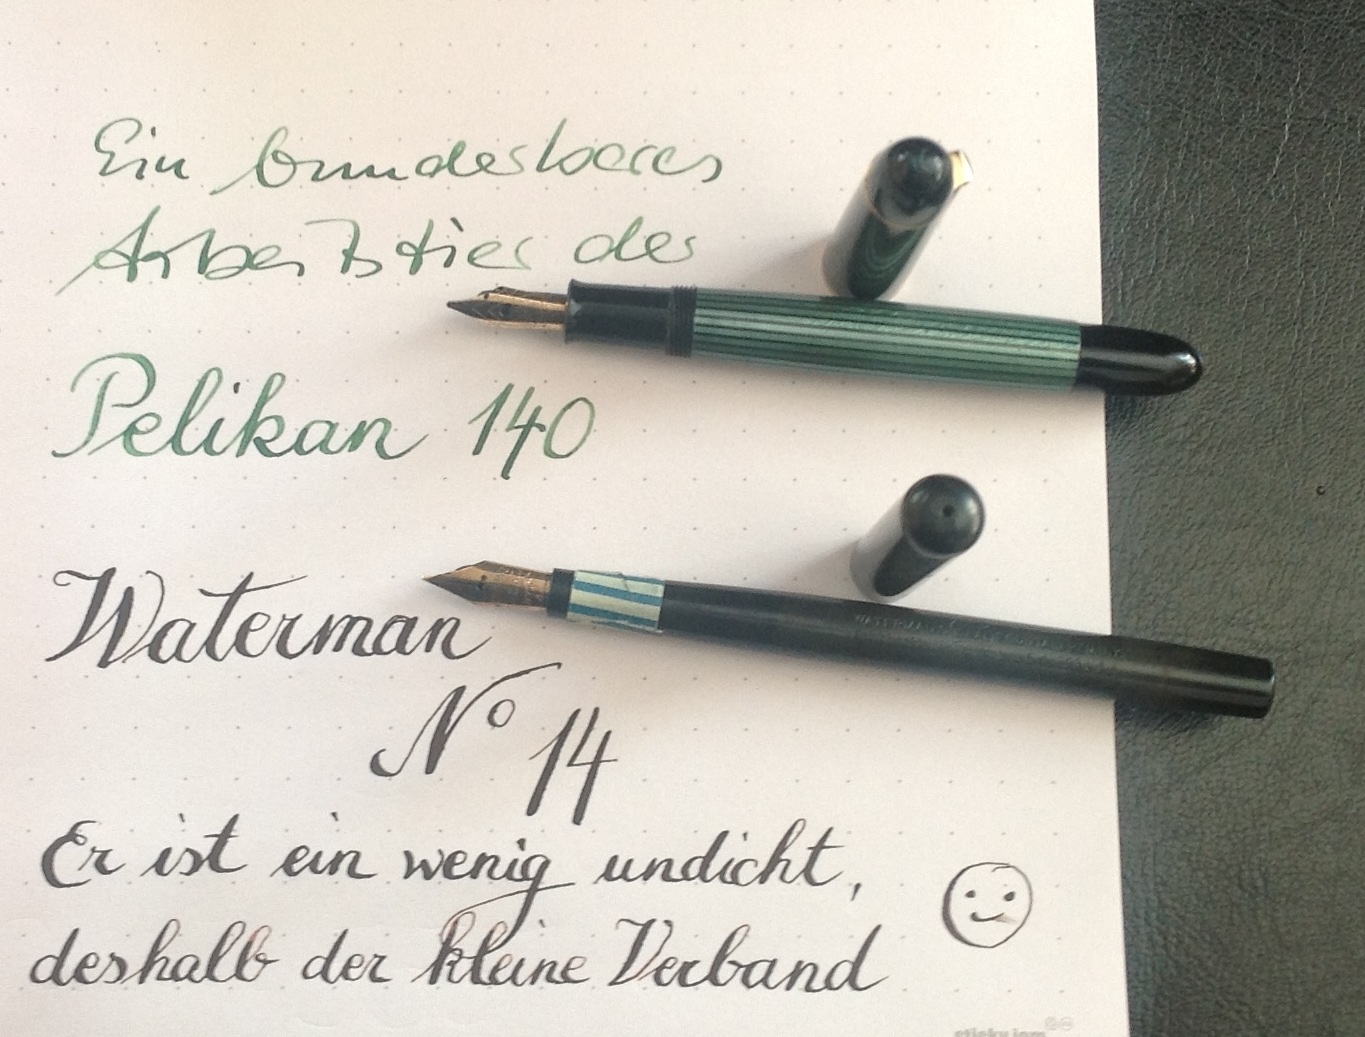 Ein wunderbares
Arbeitstier der
Pelikan 140
Waterman
No 14
Er ist ein wenig undicht,
deshalb der kleine Verband